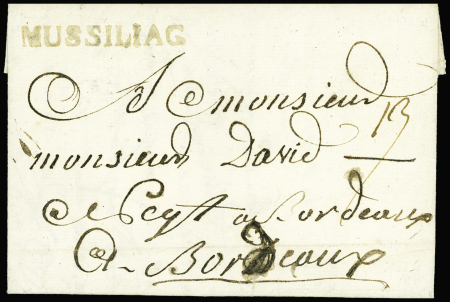 MUSSILIAC
A monsieur
monsieur David
a Bordeaux
A Bordeaux